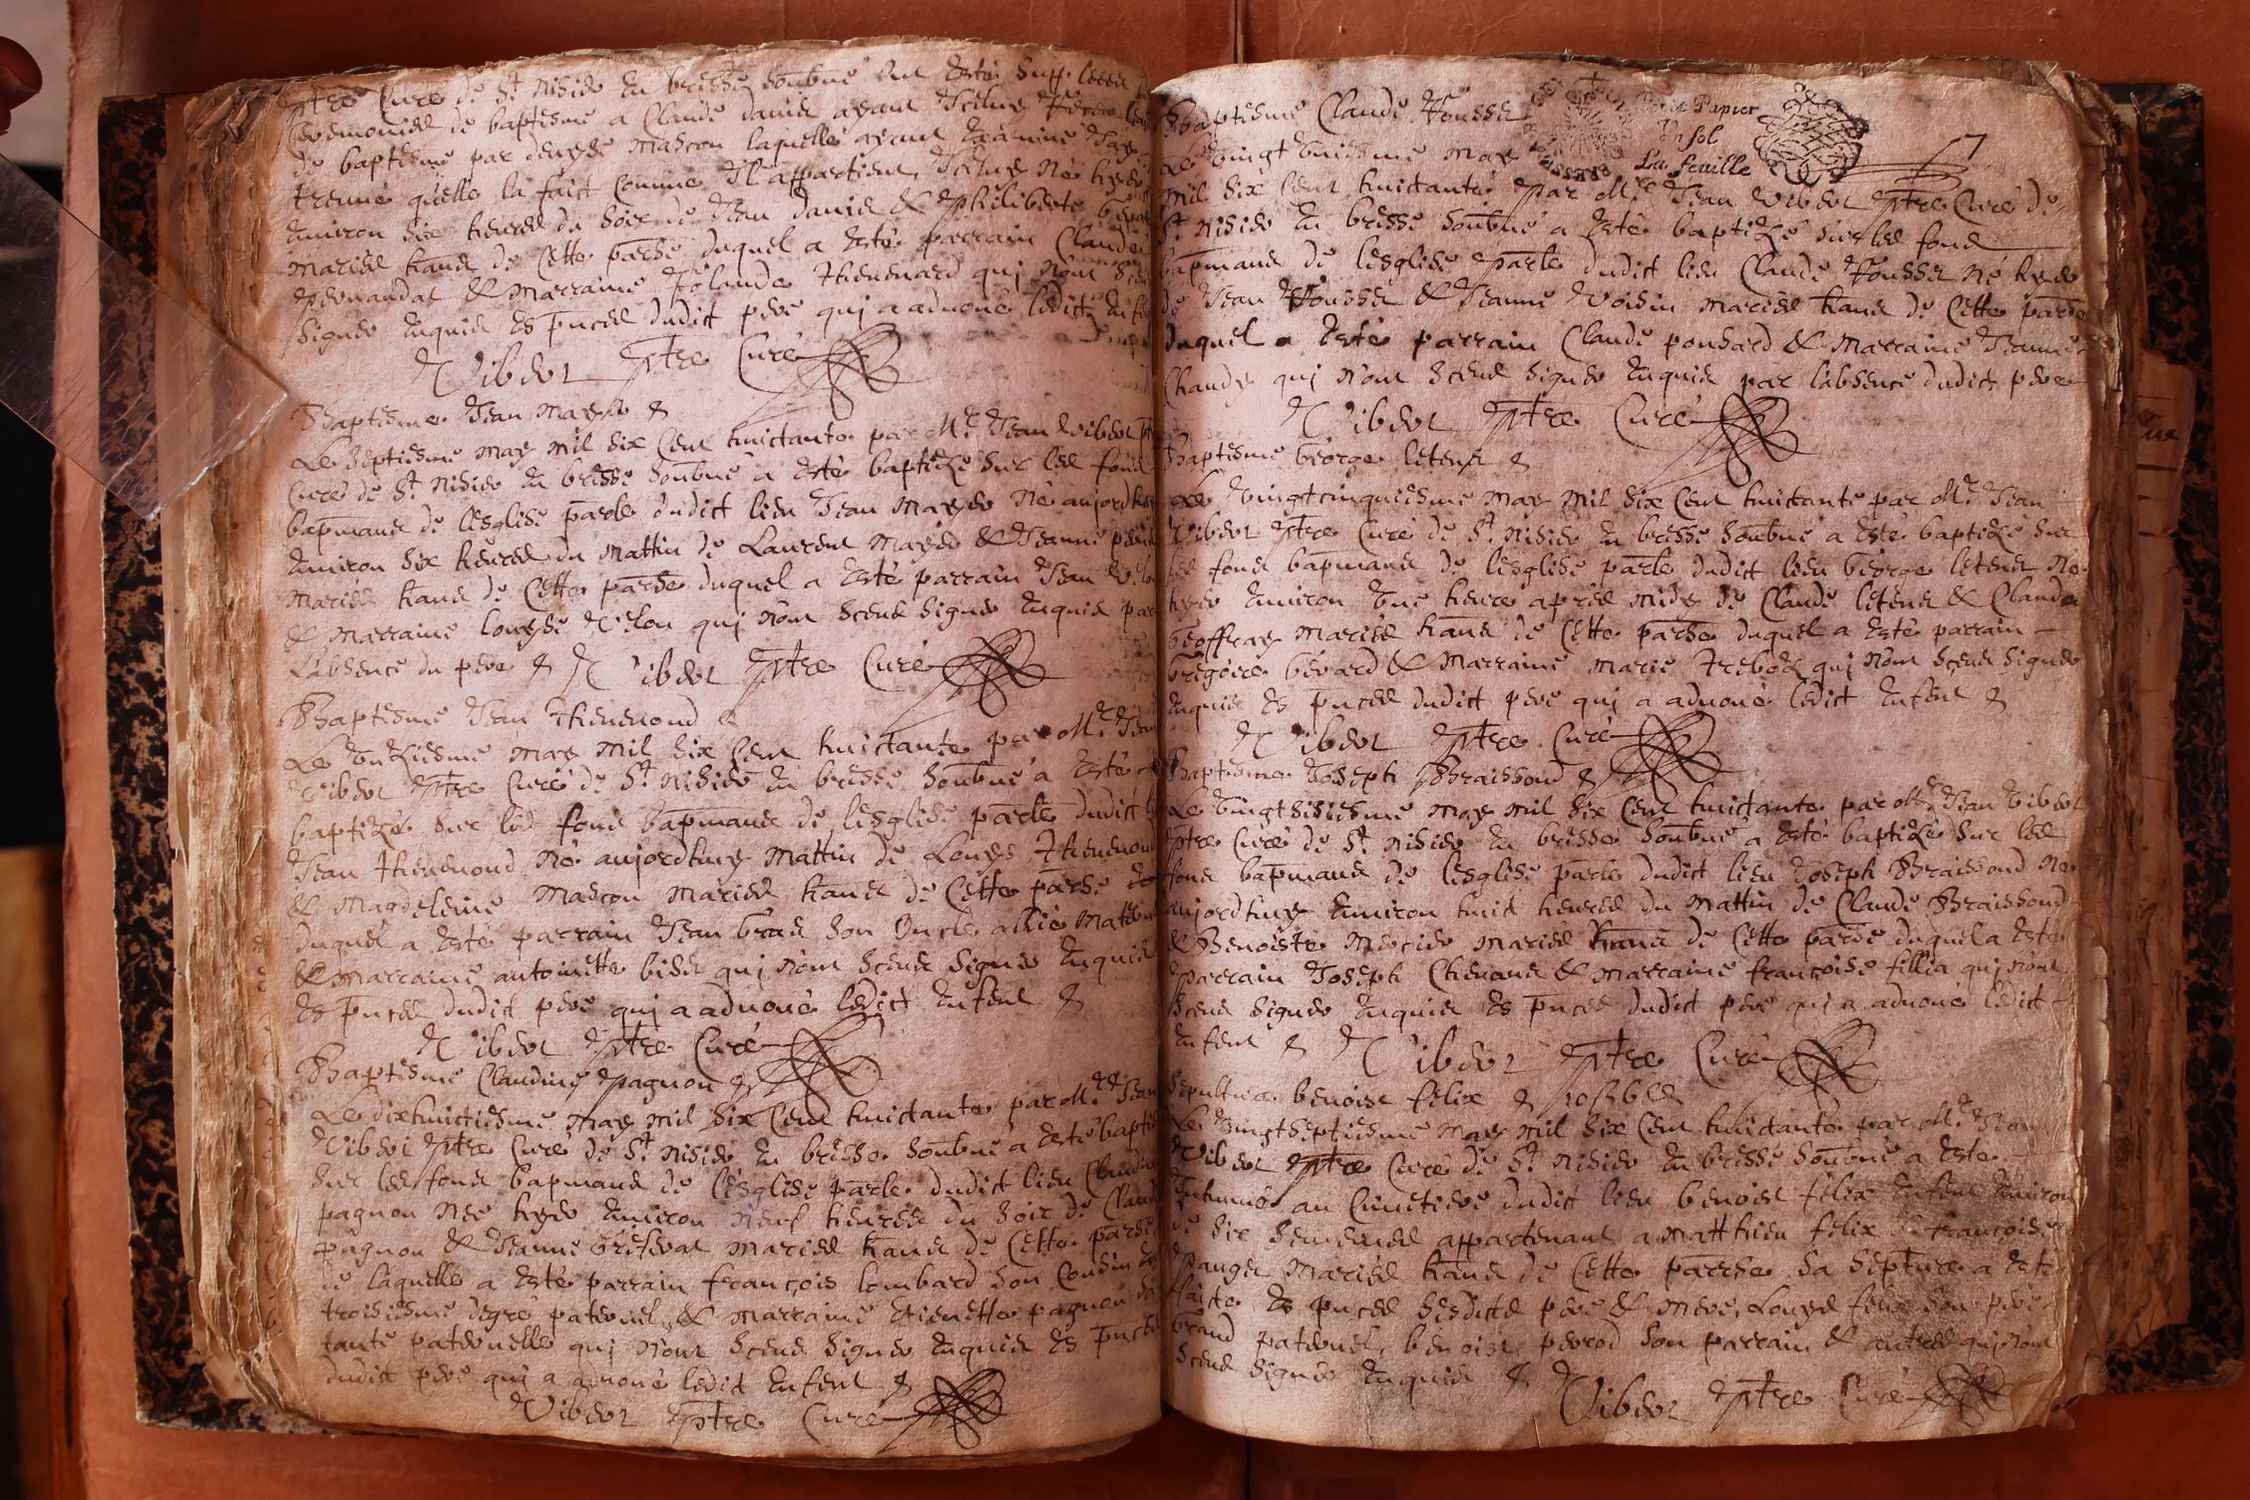 ptre Curé de St nisier en bresse soubné ont esté supp. leees
Ceremonies de baptesme a Claude dauid ayant Iceluy
de baptesme par denyse mascon laquelle ayant examiné
treuué qu'elle la faict comme Il appartient, Iceluy né hyer
enuiron six heures du soir de Jean dauid & philiberte
mariés hans de Cette parse duquel a esté parrain Claude
peruandat & marraine Yolande theuenard qui n'ont
signer enquis es pnces dudict pere qui a aduoué ledict
Vibert ptre Curé
Baptesme Jean mayer &
Le septiesme may mil six Cent huictante par Mre Jean Vibert
Curé de St nisier en bresse soubné a esté baptizé sur les fons
bapmaux de l'esglise parle dudict lieu Jean mayer né aujordhuy
enuiron six heures du mattin de Laurent mayer & Jeanne
mariés hans de Cette parse duquel a esté parrain Jean
& marraine louyse Velon qui n'ont sceus signer enquis par
l'absence du pere & Vibert ptre Curé
Baptesme Jean theuenond &
Le onziesme may mil six Cent huictante par Mre Jean
Vibert ptre Curé de St nisier en bresse soubné a esté
baptizé sur les fons bapmaux de l'esglise parle dudict
Jean theuenond né aujordhuy mattin de Louys theuenond
& magdeleine mascon mariés hans de Cette parse
duquel a esté parrain Jean son oncle allié
& marraine antoinette bider qui n'ont sceus signer enquis
es pnces dudict pere qui a aduoué ledict enfent &
Vibert ptre Curé
Baptesme Claudine pagnon &
Le dixhuictiesme may mil six Cent huictante par Mre Jean
Vibert ptre Curé de St nisier en bresse soubné a esté
sur les fons bapmaux de l'esglise parle dudict lieu Claudine
pagnon née hyer enuiron neuf heures du soir de Claude
pagnon & Jeanne mariés hans de Cette parse
de laquelle a esté parrain françois lombard son Cousin
troisiesme degré paternel, & marraine Etienette pagnon sa
tante paternelle qui n'ont sceus signer enquis es pnces
dudict pere qui a auoué ledict enfent &
Vibert ptre Curé
Baptesme Claude
Petit Papier
Un sol
La feuille
Le vingt may
mil six Cent huictante par Mre Jean Vibert ptre Curé de
St nisier en bresse soubné a esté baptizé sur les fons
bapmaux de l'esglise parle dudict lieu Claude né hyer
de Jean & Jeanne Voisin mariés hans de Cette parse
duquel a esté parrain Claude ponsard & marraine Jeanne
Chandy qui n'ont sceus signer enquis par l'absence dudict pere
Vibert ptre Curé
Baptesme George letens &
Le vingtcinquiesme may mil six Cent huictante par Mre Jean
Vibert ptre Curé de St nisier en bresse soubné a esté baptizé sur
les fons bapmaux de l'esglise parle dudict lieu George letens né
hyer enuiron une heure apres midy de Claude letens & Clauda
Geoffray mariés hans de Cette parse duquel a esté parrain
Gregoire Gerard & marraine marie qui n'ont sceus signer
enquis es pnces dudict pere qui a aduoué ledict enfent &
Vibert ptre Curé
Baptesme Joseph Braissoud &
Le vingtsisiesme may mil six Cent huictante par Mre Jean Vibert
ptre Curé de St nisier en bresse soubné a esté baptizé sur les
fons bapmaux de l'esglise parle dudict lieu Joseph Braissoud né
aujordhuy enuiron huict heures du mattin de Claude Braissoud
& Benoiste mercier mariés hans de Cette parse duquel a esté
parrain Joseph Cheuane & marraine françoise fillia qui n'ont
sceus signer enquis es pnces dudict pere qui a aduoué ledict
enfent & Vibert ptre Curé
Sepulture benoist felix &
Le vingtseptiesme may mil six Cent huictante par Mre Jean
Vibert ptre Curé de St nisier en bresse soubné a esté
Inhumé au Cimetiere dudict lieu benoist felix enfent enuiron
de six semenes appartenant a matthieu felix & françoise
mariés hans de Cette parse sa septure a esté
faicte es pnces sesdicts pere & mere, Louys felix son pere
grand paternel, benoist perrod son parrain & autres qui n'ont
sceus signer enquis & Vibert ptre Curé